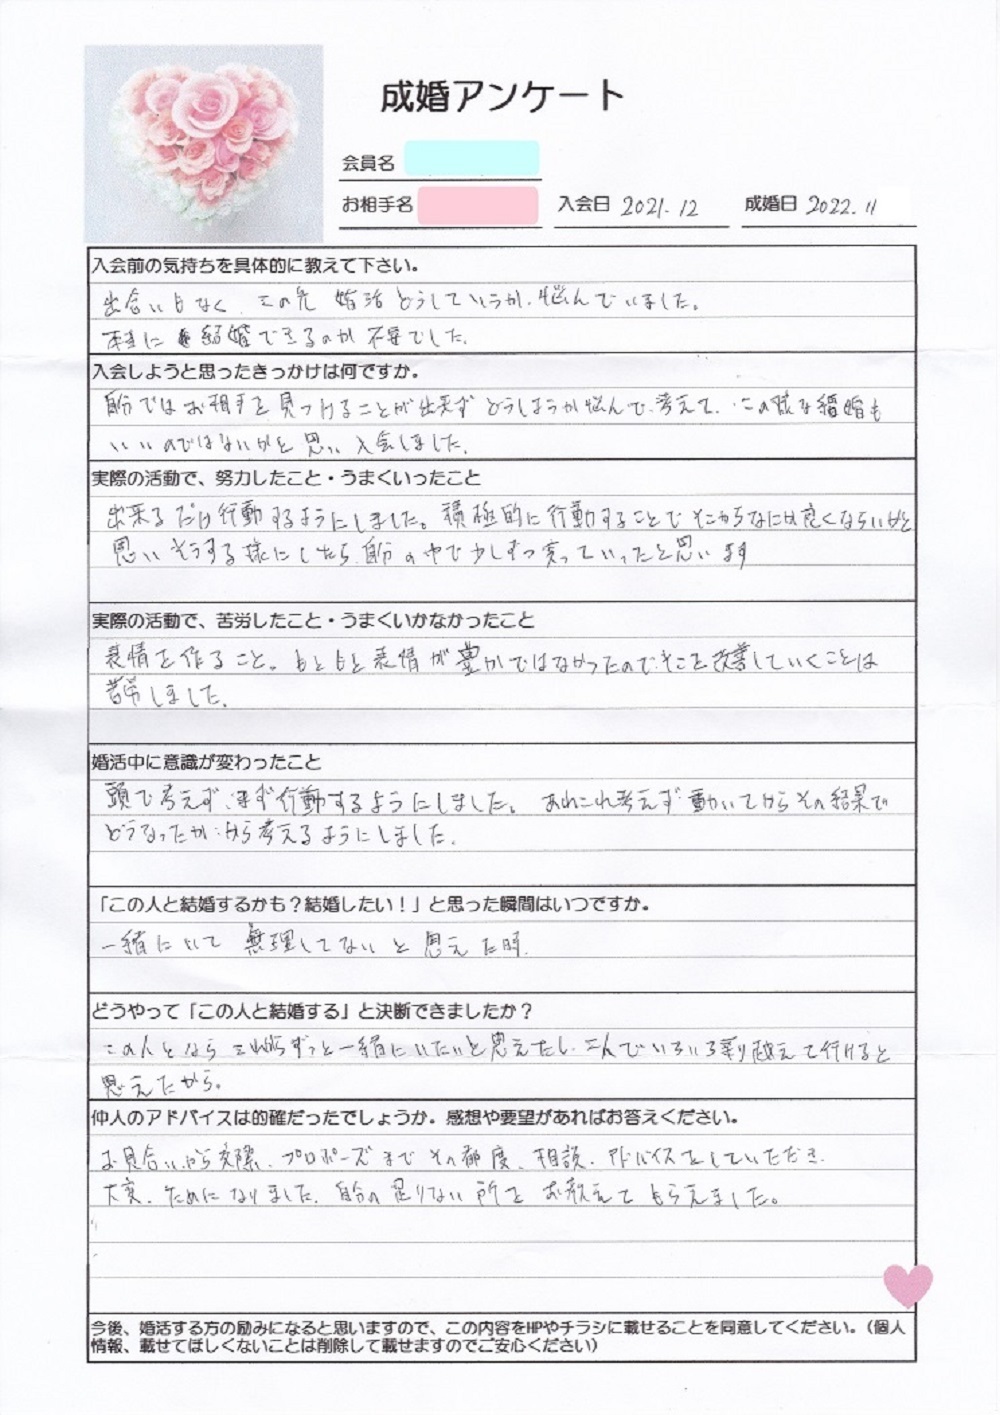 成婚アンケート
会員名
お相手名
入会日 2021.12
成婚日 2022.11
入会前の気持ちを具体的に教えて下さい。
出会いもなく、この先 婚活どうしていうか、悩んでいました。
本当に 結婚できるのか 不安でした。
入会しようと思ったきっかけは何ですか。
自分ではお相手を見つけることが出来ずどうしようか悩んで、考えて、この様な結婚も
いいのではないかと思い入会しました。
実際の活動で、努力したこと・うまくいったこと
出来るだけ行動するようにしました。積極的に行動することでそこからなにか良くならいかと
思いそうする様にしたら、自分の中で少しずつ変っていったと思います
実際の活動で、苦労したこと・うまくいかなかったこと
表情を作ること。もともと表情が豊かではなかったのでそこを改善していくことは
苦労しました。
婚活中に意識が変わったこと
頭で考えず、まず行動するようにしました。あれこれ考えず動いてからその結果で
どうなったか、から考えるようにしました。
「この人と結婚するかも？結婚したい！」と思った瞬間はいつですか。
一緒にいて 無理してないと思えた時
どうやって「この人と結婚する」と決断できましたか？
この人となら これからずっと一緒にいたいと思えたし、二人でいろいろ乗り越えて行けると
思えたから。
仲人のアドバイスは的確だったでしょうか。感想や要望があればお答えください。
お見合いから交際、プロポーズまでその都度、相談、アドバイスをしていただき、
大変、ためになりました。自分の足りない所をお教えてもらえました。
今後、婚活する方の励みになると思いますので、この内容をHPやチラシに載せることを同意してください。（個人
情報、載せてほしくないことは削除して載せますのでご安心ください）